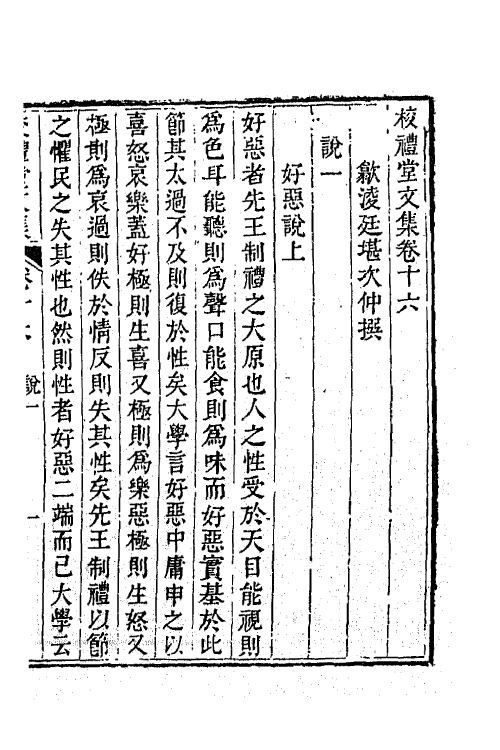 校禮堂文集卷十六
歙淩廷堪次仲撰
說一
好惡說上
好惡者先王制禮之大原也人之性受於天目能視則
為色耳能聽則為聲口能食則為味而好惡實基於此
節其太過不及則復於性矣大學言好惡中庸申之以
喜怒哀樂蓋好極則生喜又極則為樂惡極則生怒又
極則為哀過則佚於情反則失其性矣先王制禮以節
之懼民之失其性也然則性者好惡二端而已大學云
說一 一